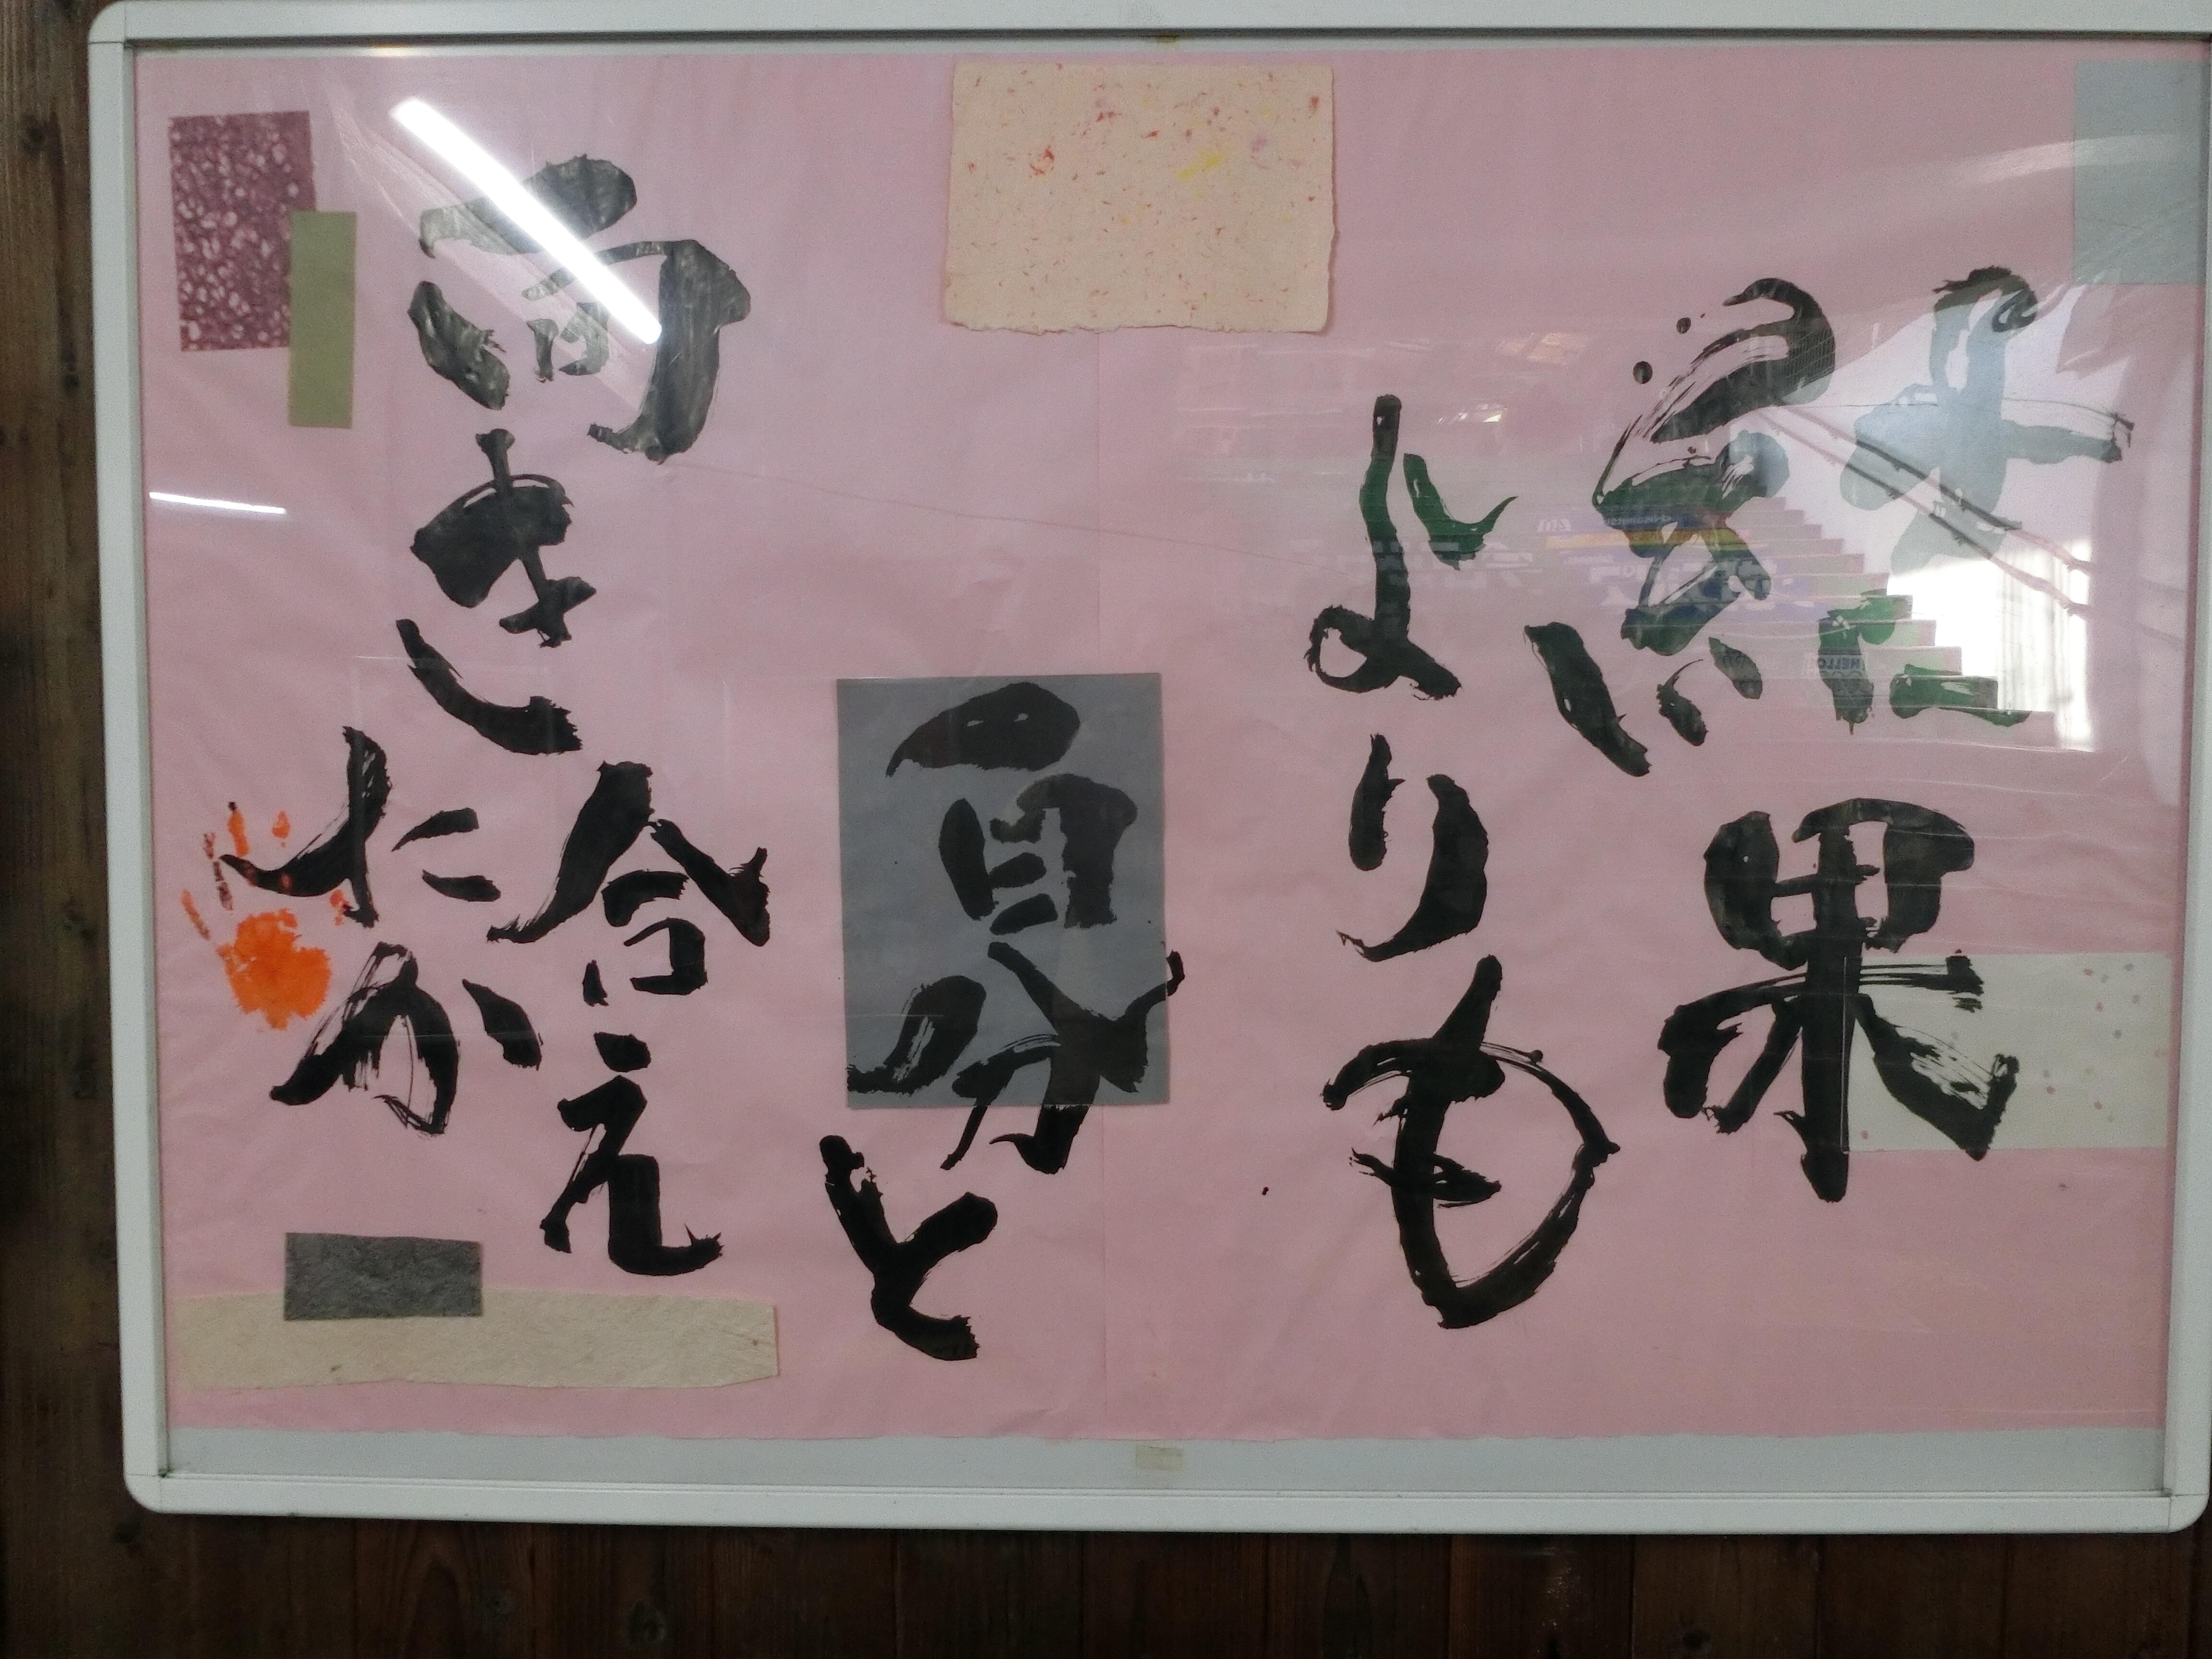 結果
よりも
自分と
向き合え
たか